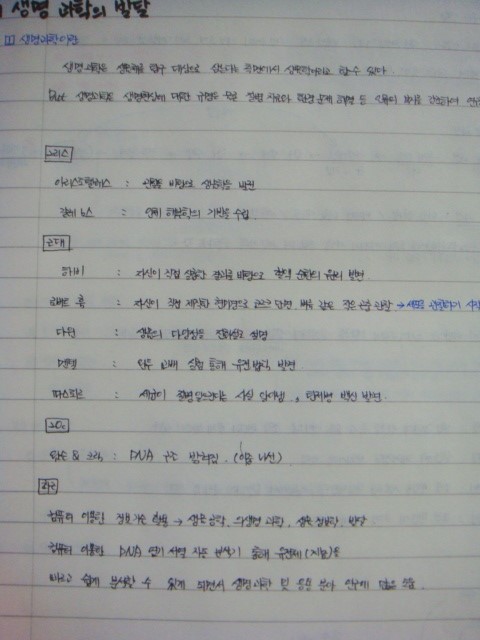 생명 과학의 발달
1 생명과학이란
생명과학은 생물체를 탐구 대상으로 삼는다는 측면에서 생물학이라고 할 수 있다.
But 생명과학은 생명현상에 대한 규명은 물론 질병 치료와 환경 문제 해결 등 인류의 복지를
그리스
아리스토텔레스 : 바탕으로 생물학을
갈레노스 : 인체 해부학의 기초를 수립
근대
하비 : 자신이 직접 실험한 결과를 바탕으로 혈액 순환의 원리 발견
로버트 훅 : 자신이 직접 제작한 현미경으로 코르크 단면 벌집 같은 작은 관찰 →
다윈 : 생물의 다양성을 진화설로 설명
멘델 : 완두 교배 실험 통해 유전법칙 발견
파스퇴르 : 세균이 질병 일으킨다는 사실 알아냄, 탄저병 백신 발견.
20C
왓슨 & 크릭 : DNA 구조 밝혀짐. (이중 나선)
최근
컴퓨터 이용한 정보 기술 활용 → 생물 공학, 의생명 과학, 생물 정보학 발달
컴퓨터 이용한 DNA 염기 서열 자동 분석기 통해 유전체(게놈)을
빠르고 쉽게 분석할 수 있게 되면서 생명과학 및 응용 분야 연구에 많은